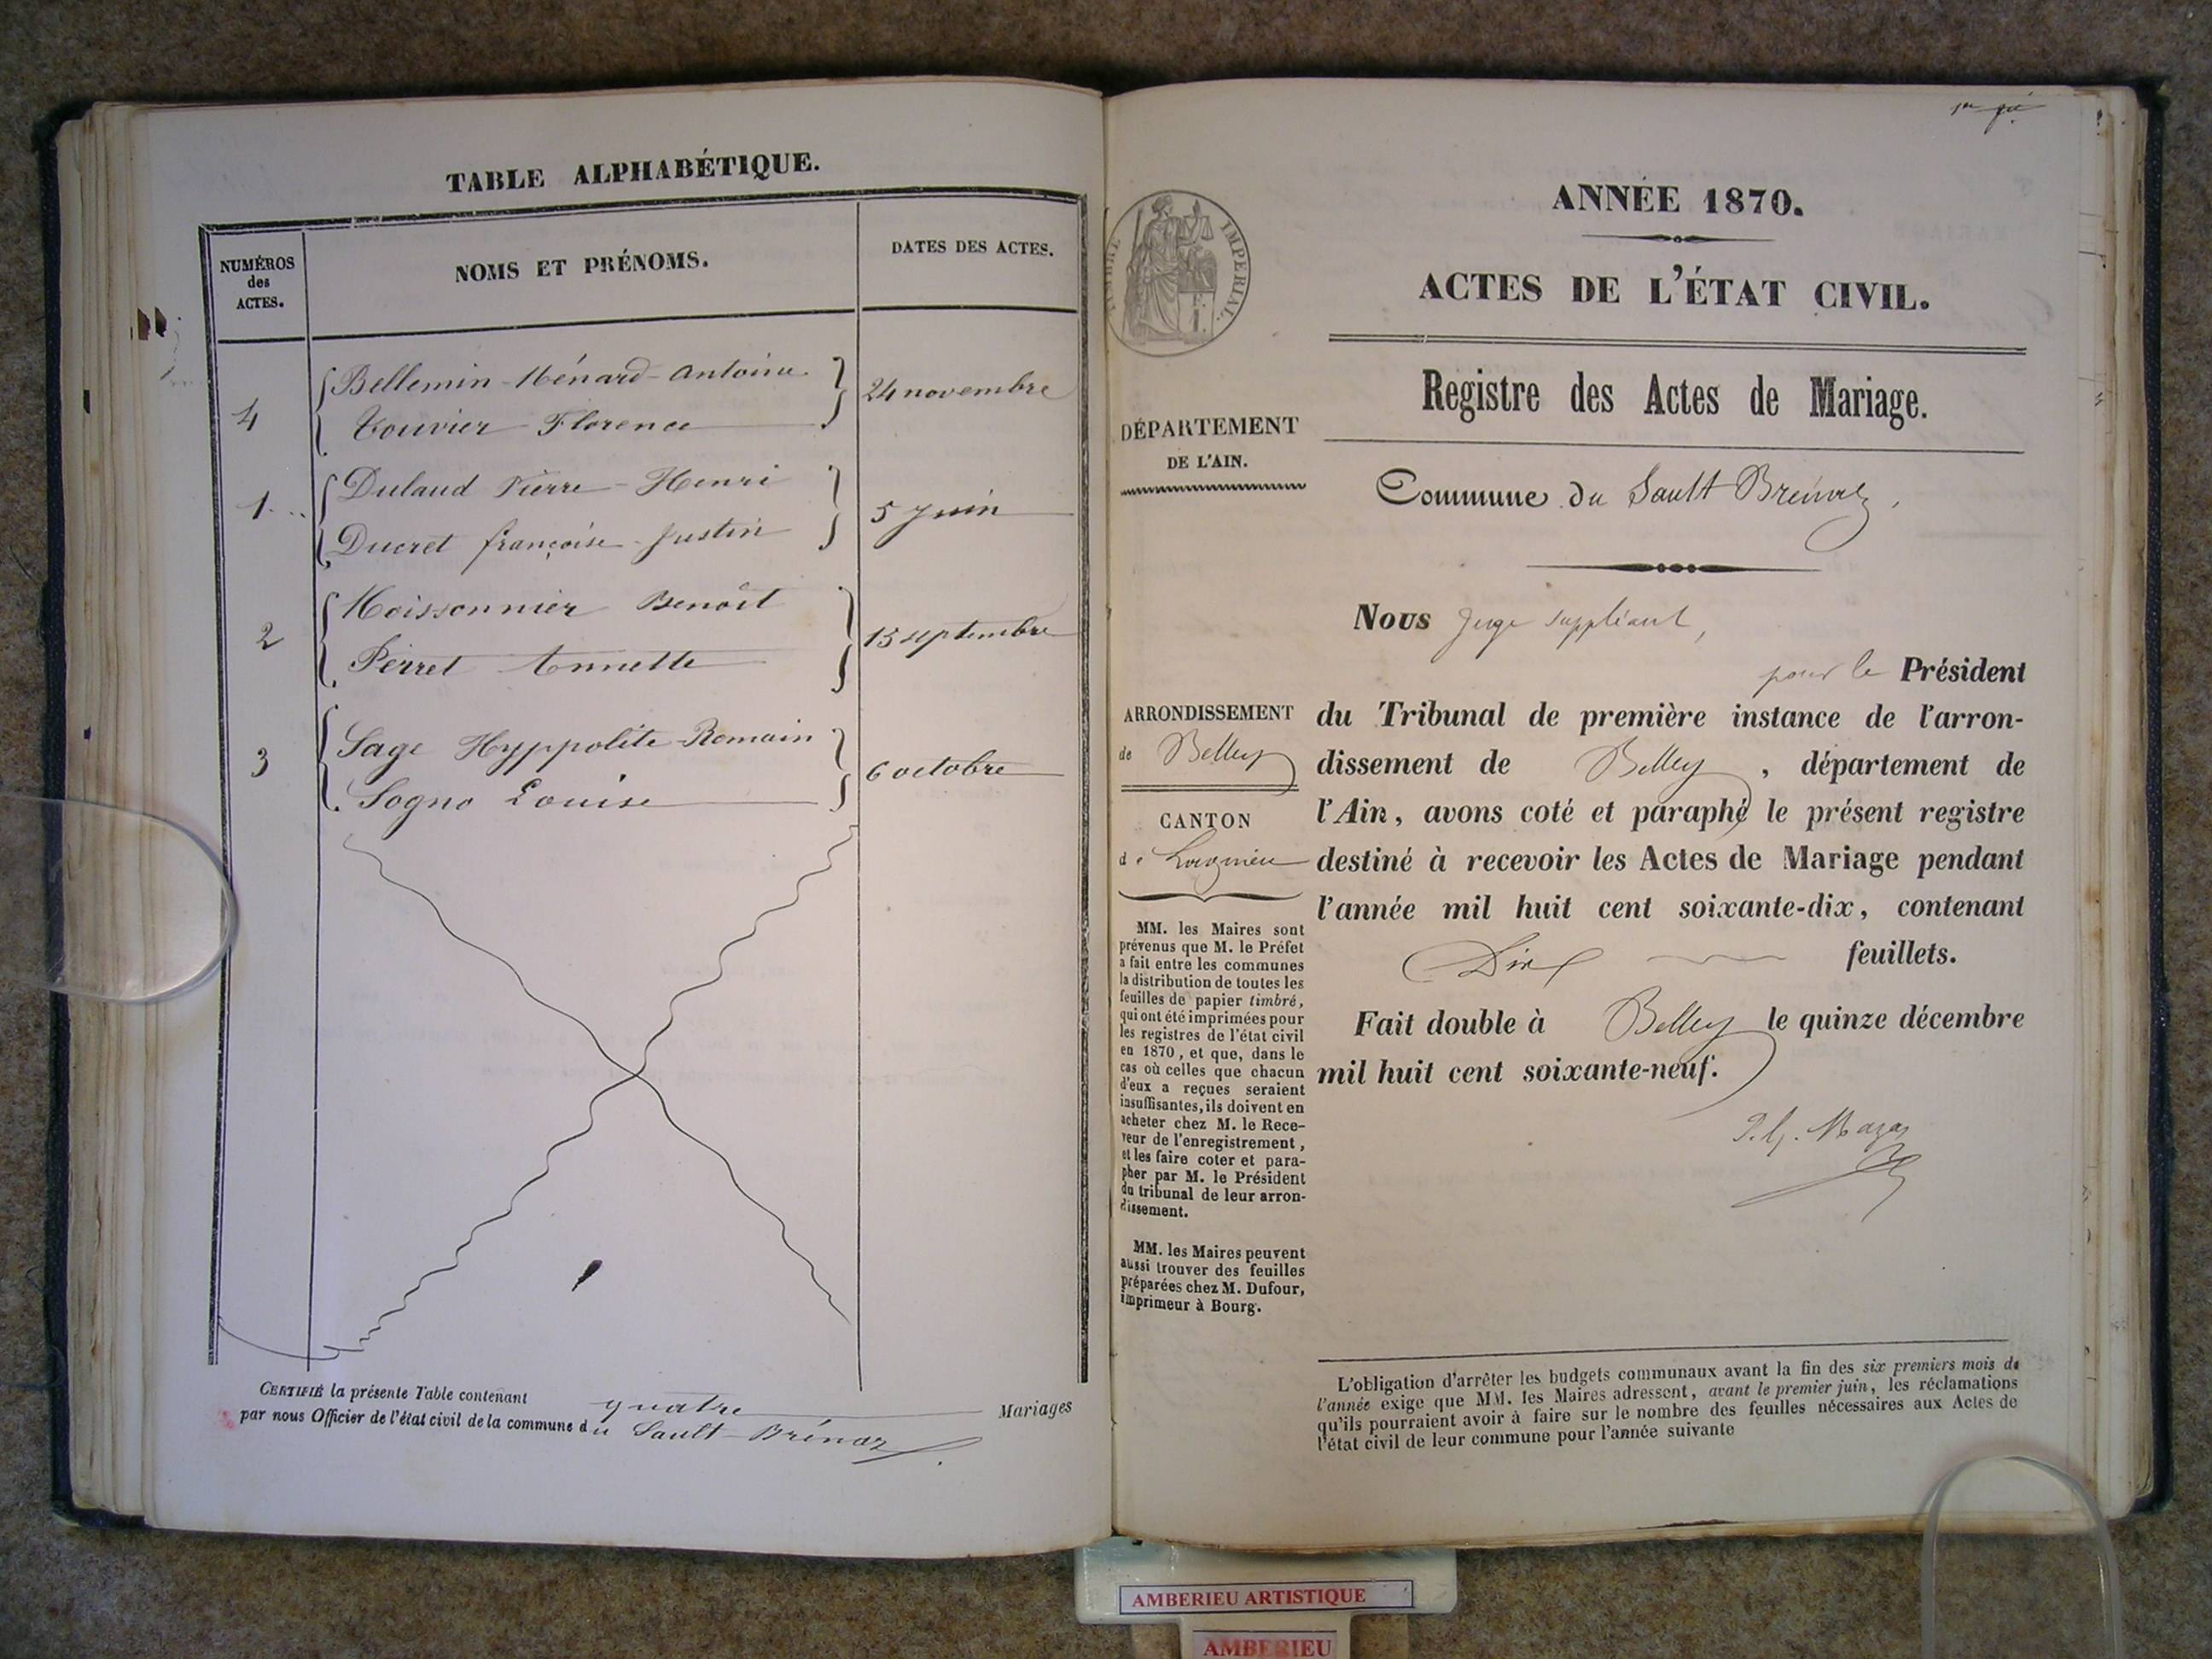 TABLE ALPHABÉTIQUE.
NUMÉROS
des
ACTES.
NOMS ET PRÉNOMS.
DATES DES ACTES.
4
Bellemin-Ménard-Antoine
Touvier Florence
24 novembre
1
Dulaud Pierre-Henri
Ducret françoise-Justin
5 Juin
2
Moissonnier Benoît
Perret Annette
15 septembre
3
Sage Hyppolite-Romain
Sogno Louise
6 octobre
CERTIFIÉ la présente Table contenant quatre Mariages
par nous Officier de l'état civil de la commune du Sault-Brénaz
ANNÉE 1870.
ACTES DE L'ÉTAT CIVIL.
Registre des Actes de Mariage.
Commune du Sault Brénaz,
TIMBRE IMPÉRIAL
DÉPARTEMENT
DE L'AIN.
ARRONDISSEMENT
de Belley
CANTON
de Lagnieu
MM. les Maires sont
prévenus que M. le Préfet
a fait entre les communes
la distribution de toutes les
feuilles de papier timbré,
qui ont été imprimées pour
les registres de l'état civil
en 1870, et que, dans le
cas où celles que chacun
d'eux a reçues seraient
insuffisantes, ils doivent en
acheter chez M. le Rece-
veur de l'enregistrement,
et les faire coter et para-
pher par M. le Président
du tribunal de leur arron-
dissement.
MM. les Maires peuvent
aussi trouver des feuilles
préparées chez M. Dufour,
imprimeur à Bourg.
Nous Juge suppléant,
pour le Président
du Tribunal de première instance de l'arron-
dissement de Belley, département de
l'Ain, avons coté et paraphé le présent registre
destiné à recevoir les Actes de Mariage pendant
l'année mil huit cent soixante-dix, contenant
Dix feuillets.
Fait double à Belley le quinze décembre
mil huit cent soixante-neuf.
L'obligation d'arrêter les budgets communaux avant la fin des six premiers mois de
l'année exige que MM. les Maires adressent, avant le premier juin, les réclamations
qu'ils pourraient avoir à faire sur le nombre des feuilles nécessaires aux Actes de
l'état civil de leur commune pour l'année suivante
AMBERIEU ARTISTIQUE
AMBERIEU